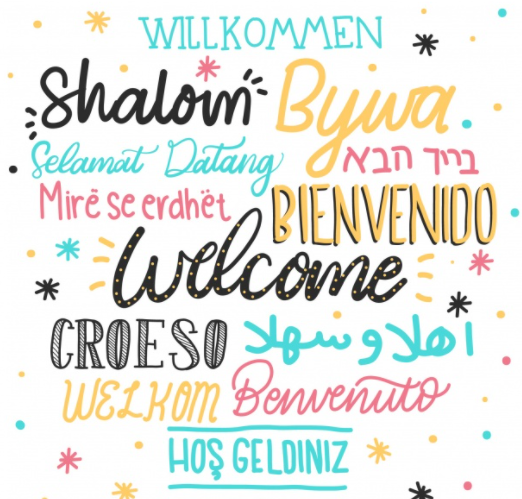 WILLKOMMEN
Shalom Bywa
Selamat Datang
בריך הבא
Mirë se erdhët
BIENVENIDO
Welcome
CROESO
اهلا و سهلا
WELKOM Benvenuto
HOŞ GELDINIZ